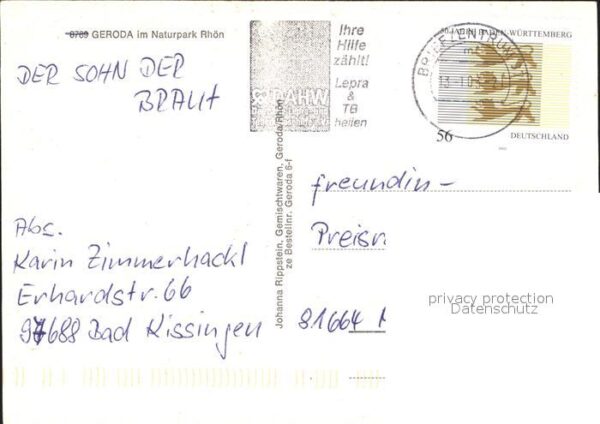 8789 GERODA im Naturpark Rhön
DER SOHN DER
BRAUT
Abs.
Karin Zimmerhackl
Erhardstr. 66
97688 Bad Kissingen
Johanna Rippstein, Gemischtwaren, Geroda/Rhön
ze Bestellnr. Geroda 6-f
Ihre
Hilfe
zählt!
Lepra
&
TB
heilen
DAHW
BRIEFZENTRUM
JAHRE BADEN-WÜRTTEMBERG
56
DEUTSCHLAND
freundin-
Preisr
81664
privacy protection
Datenschutz